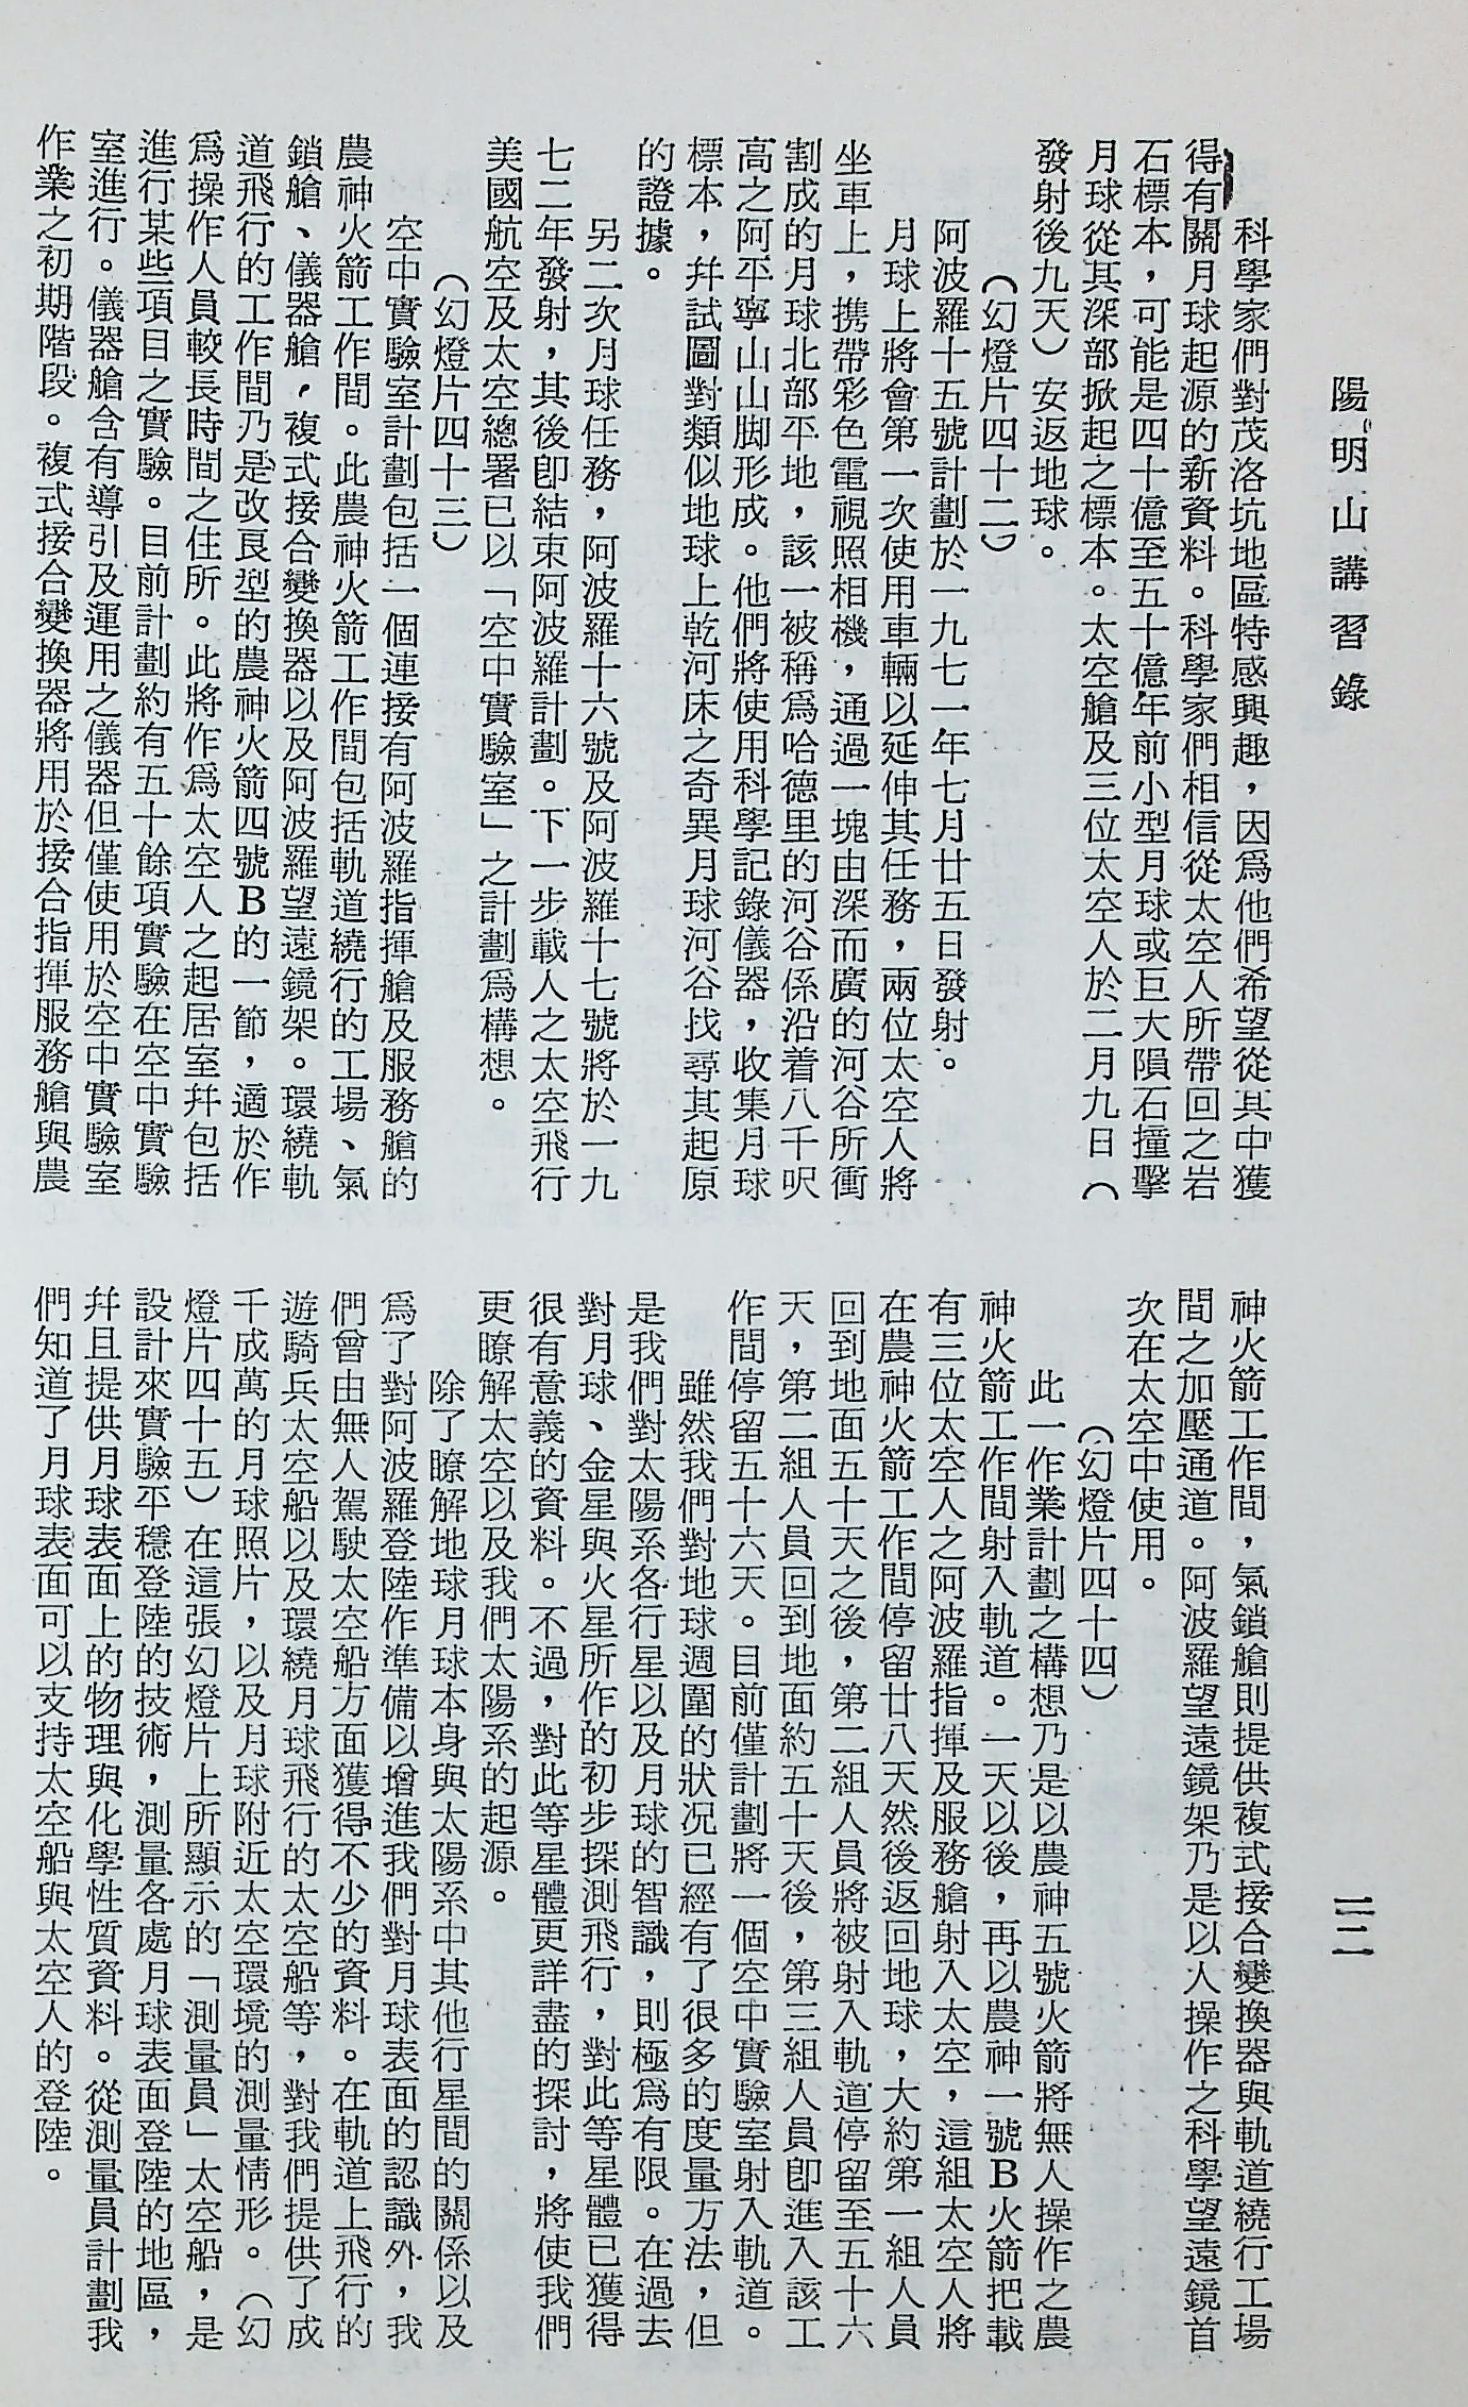 陽明山講習錄
二二
科學家們對茂洛坑地區特感興趣，因爲他們希望從其中獲
得有關月球起源的新資料。科學家們相信從太空人所帶回之岩
石標本，可能是四十億至五十億年前小型月球或巨大隕石撞擊
月球從其深部掀起之標本。太空艙及三位太空人於二月九日（
發射後九天）安返地球。
阿波羅十五號計劃於一九七一年七月廿五日發射。
（幻燈片四十二）
月球上將會第一次使用車輛以延伸其任務，兩位太空人將
坐車上，携帶彩色電視照相機，通過一塊由深而廣的河谷所衝
割成的月球北部平地，該一被稱爲哈德里的河谷係沿着八千呎
高之阿平寧山山脚形成。他們將使用科學記錄儀器，收集月球
標本，幷試圖對類似地球上乾河床之奇異月球河谷找尋其起原
的證據。
另二次月球任務，阿波羅十六號及阿波羅十七號將於一九
七二年發射，其後卽結束阿波羅計劃。下一步載人之太空飛行
美國航空及太空總署已以「空中實驗室」之計劃爲構想。
（幻燈片四十三）
空中實驗室計劃包括一個連接有阿波羅指揮艙及服務艙的
農神火箭工作間。此農神火箭工作間包括軌道繞行的工場、氣
鎖艙、儀器艙，複式接合變換器以及阿波羅望遠鏡架。環繞軌
道飛行的工作間乃是改良型的農神火箭四號B的一節，適於作
爲操作人員較長時間之住所。此將作爲太空人之起居室幷包括
進行某些項目之實驗。目前計劃約有五十餘項實驗在空中實驗
室進行。儀器艙含有導引及運用之儀器但僅使用於空中實驗室
作業之初期階段。複式接合變換器將用於接合指揮服務艙與農
神火箭工作間，氣鎖艙則提供複式接合變換器與軌道繞行工場
間之加壓通道。阿波羅望遠鏡架乃是以人操作之科學望遠鏡首
次在太空中使用。
（幻燈片四十四）
此一作業計劃之構想乃是以農神五號火箭將無人操作之農
神火箭工作間射入軌道。一天以後，再以農神一號B火箭把載
有三位太空人之阿波羅指揮及服務艙射入太空，這組太空人將
在農神火箭工作間停留廿八天然後返回地球，大約第一組人員
回到地面五十天之後，第二組人員將被射入軌道停留至五十六
天，第二組人員回到地面約五十天後，第三組人員卽進入該工
作間停留五十六天。目前僅計劃將一個空中實驗室射入軌道。
雖然我們對地球週圍的狀況已經有了很多的度量方法，但
是我們對太陽系各行星以及月球的智識，則極爲有限。在過去
對月球、金星與火星所作的初步探測飛行，對此等星體已獲得
很有意義的資料。不過，對此等星體更詳盡的探討，將使我們
更瞭解太空以及我們太陽系的起源。
除了瞭解地球月球本身與太陽系中其他行星間的關係以及
爲了對阿波羅登陸作準備以增進我們對月球表面的認識外，我
們曾由無人駕駛太空船方面獲得不少的資料。在軌道上飛行的
遊騎兵太空船以及環繞月球飛行的太空船等，對我們提供了成
千成萬的月球照片，以及月球附近太空環境的測量情形。（幻
燈片四十五）在這張幻燈片上所顯示的「測量員」太空船，是
設計來實驗平穩登陸的技術，測量各處月球表面登陸的地區，
幷且提供月球表面上的物理與化學性質資料。從測量員計劃我
們知道了月球表面可以支持太空船與太空人的登陸。